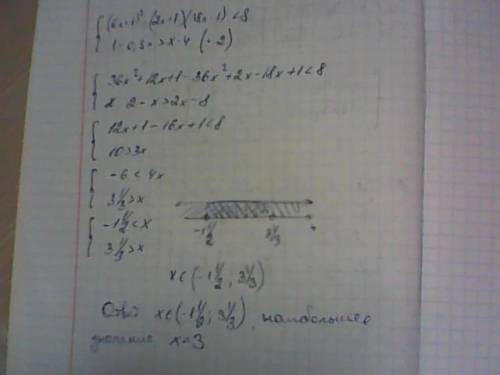 (6x+1)² - (2x-1)(18x-1) < 8
1 - 0,5x > x - 4 (·2)
36x² + 12x + 1 - 36x² + 2x - 18x + 1 < 8
2 - x > 2x - 8
12x + 1 - 16x + 1 < 8
10 > 3x
-6 < 4x
3 1/3 > x
-1 1/2 < x
3 1/3 > x
-1 1/2 3 1/3 x
x ∈ (-1 1/2; 3 1/3)
Ответ x ∈ (-1 1/2; 3 1/3), наибольшее
значение x = 3